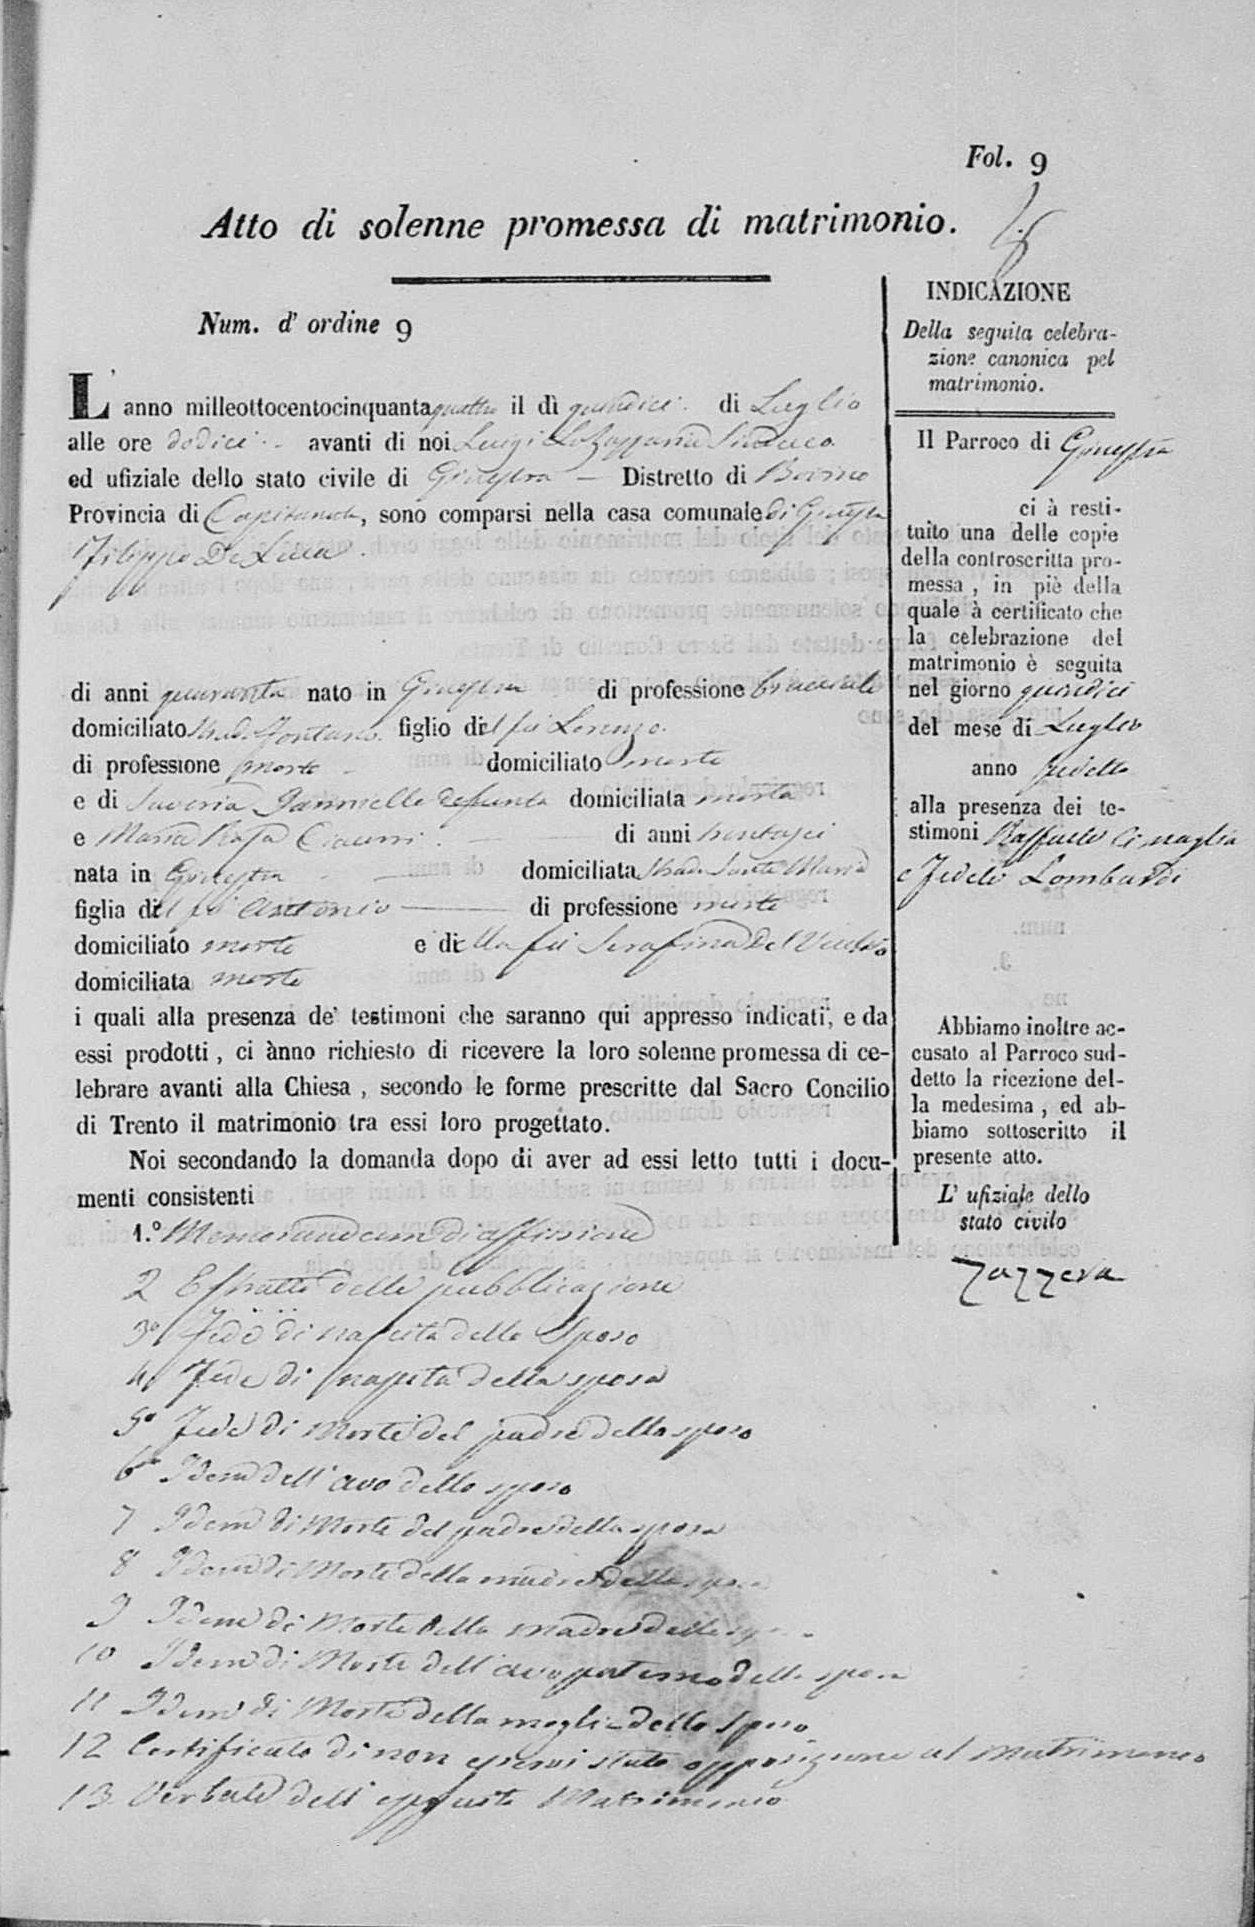 Fol. 9
Atto di solenne promessa di matrimonio.
Num. d' ordine 9
L' anno milleottocentocinquantaquattro il dì quindici di Luglio
alle ore dodici avanti di noi Luigi Sindaco
ed ufiziale dello stato civile di Ginestra — Distretto di Bovino
Provincia di Capitanata, sono comparsi nella casa comunale di Ginestra
Filippo De Luca.
di anni quaranta nato in Ginestra di professione bracciale
domiciliato Strada Fontana figlio del fu Lorenzo.
di professione morto domiciliato morto
e di Saveria Iannielle defunta domiciliata morta
e Maria Rosa Ciccarri. di anni trentasei
nata in Ginestra domiciliata Strada Santa Maria
figlia del fu Antonio di professione morto
domiciliato morto e della fu Serafina Del Vecchio
domiciliata morta
i quali alla presenza de' testimoni che saranno qui appresso indicati, e da
essi prodotti, ci ànno richiesto di ricevere la loro solenne promessa di ce-
lebrare avanti alla Chiesa, secondo le forme prescritte dal Sacro Concilio
di Trento il matrimonio tra essi loro progettato.
Noi secondando la domanda dopo di aver ad essi letto tutti i docu-
menti consistenti
1.º Memorandum di affissione
2 Estratto delle pubblicazione
3º Fede di nascita dello Sposo
4 Fede di nascita della sposa
5º Fede di Morte del padre dello sposo
6º Idem dell'avo dello sposo
7 Idem di Morte del padre della sposa
8 Idem di Morte della madre dello sposo
9 Idem di Morte della madre della sposa
10 Idem di Morte dell'avo paterno della sposa
11 Idem di Morte della moglie dello Sposo
12 Certificato di non esservi stato opposizione al Matrimonio
13 Verbale dell' Matrimonio
INDICAZIONE
Della seguita celebra-
zione canonica pel
matrimonio.
Il Parroco di Ginestra
ci à resti-
tuito una delle copie
della controscritta pro-
messa, in piè della
quale à certificato che
la celebrazione del
matrimonio è seguita
nel giorno quindici
del mese di Luglio
anno sudetto
alla presenza dei te-
stimoni Raffaele Cinaglia
e Fedele Lombardi
Abbiamo inoltre ac-
cusato al Parroco sud-
detto la ricezione del-
la medesima, ed ab-
biamo sottoscritto il
presente atto.
L' ufiziale dello
stato civile
Zazzera